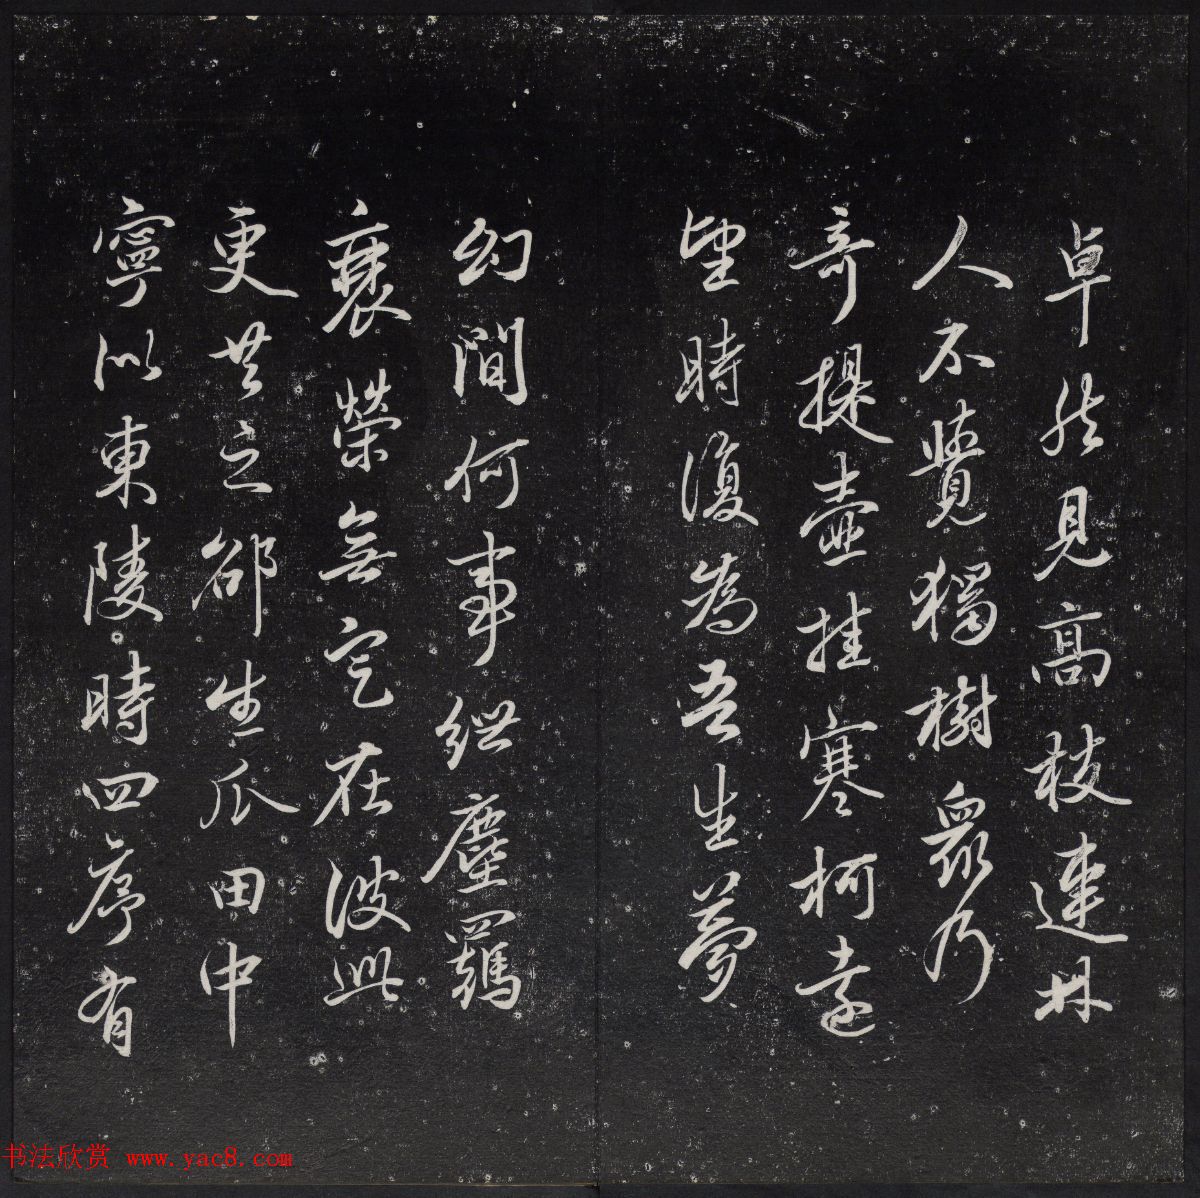 卓然見高枝連林
人不覺獨樹眾乃
奇提壺挂寒柯遠
望時復為吾生夢
幻間何事紲塵羈
衰榮無定在彼此
更共之邵生瓜田中
寧似東陵時四序有
书法欣赏 www.yac8.com